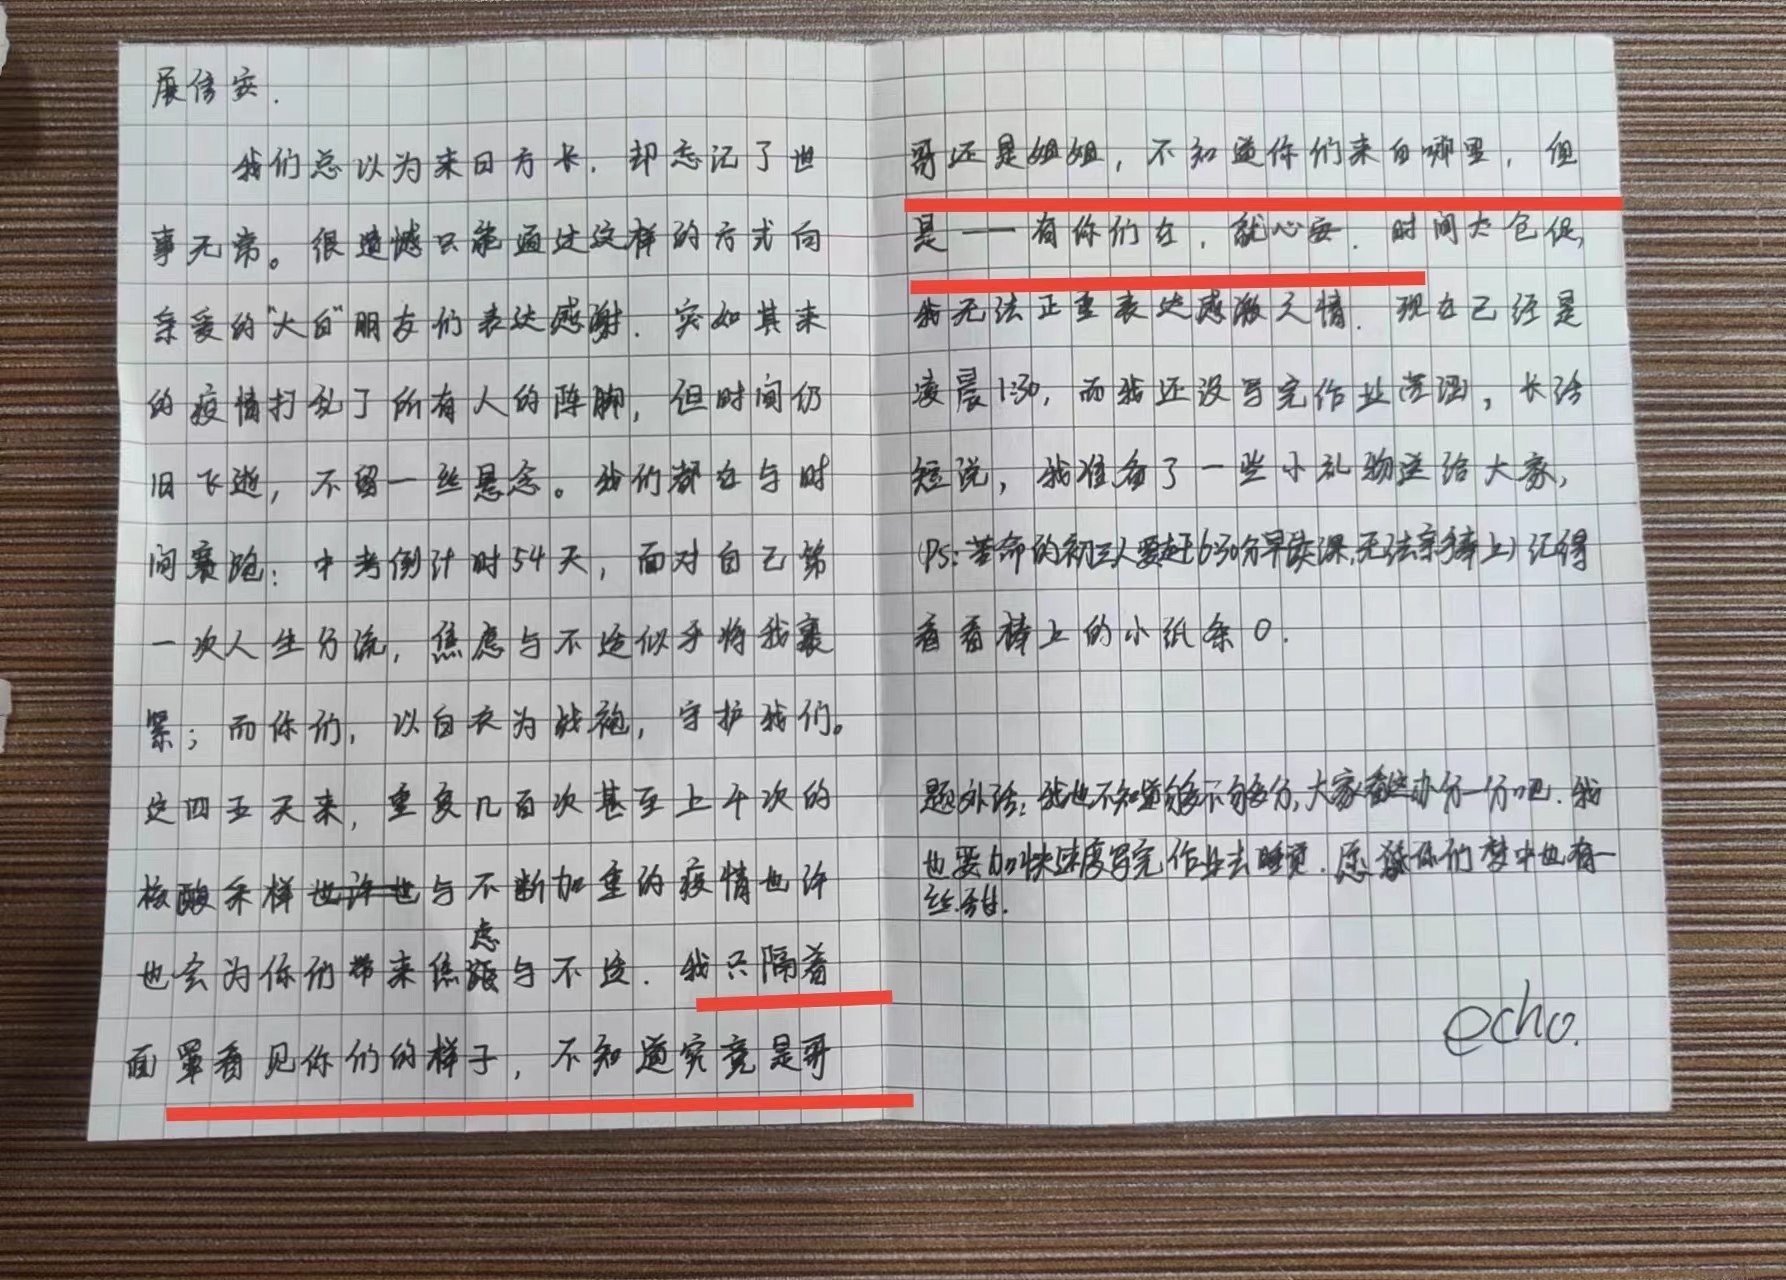 展信安.
我们总以为来日方长,却忘记了世
事无常。很遗憾只能通过这样的方式向
亲爱的"大白"朋友们表达感谢.突如其来
的疫情打乱了所有人的阵脚,但时间仍
旧飞逝,不留一丝悬念。我们都在与时
间赛跑:中考倒计时54天,面对自己第
一次人生分流,焦虑与不适似乎将我裹
紧;而你们,以白衣为战袍,守护我们。
这四五天来,重复几百次甚至上千次的
核酸采样也许也与不断加重的疫情也许
也会为你们带来焦虑与不适.我只隔着
面罩看见你们的样子,不知道究竟是哥
哥还是姐姐,不知道你们来自哪里,但
是——有你们在,就心安.时间太仓促,
我无法正重表达感激之情.现在已经是
凌晨1:30,而我还没写完作业,长话
短说,我准备了一些小礼物送给大家,
(Ps:苦命的初三人要赶6:30分早读课,无法亲手奉上)记得
看看棒上的小纸条O.
题外话:我也不知道够不够分,大家看着办分一分吧.我
也要加快速度写完作业去睡觉.愿你们梦中也有一
丝甜.
echo.